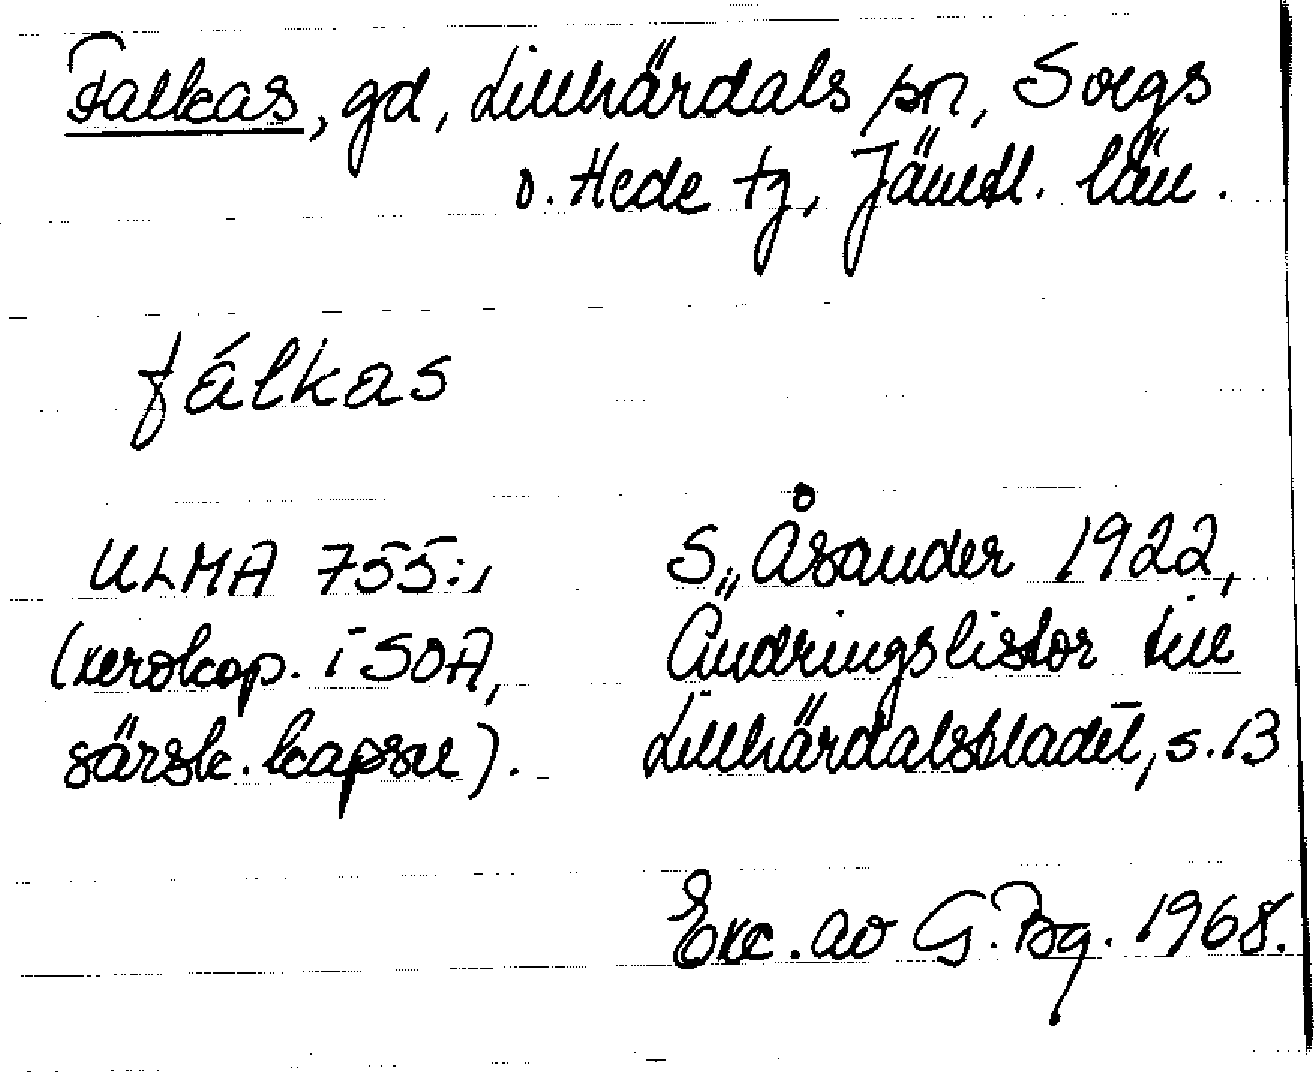 Falkas, gd, Lillhärdals sn, Svegs
o. Hede tg, Jämtl. län.
fálkas
ULMA 755:1 S. Åsander 1922,
(xerokop. i SOA, Ändringslistor till
särsk. kapsel). Lillhärdalsbladet, s. 13
Exc. av G. Bg. 1968.